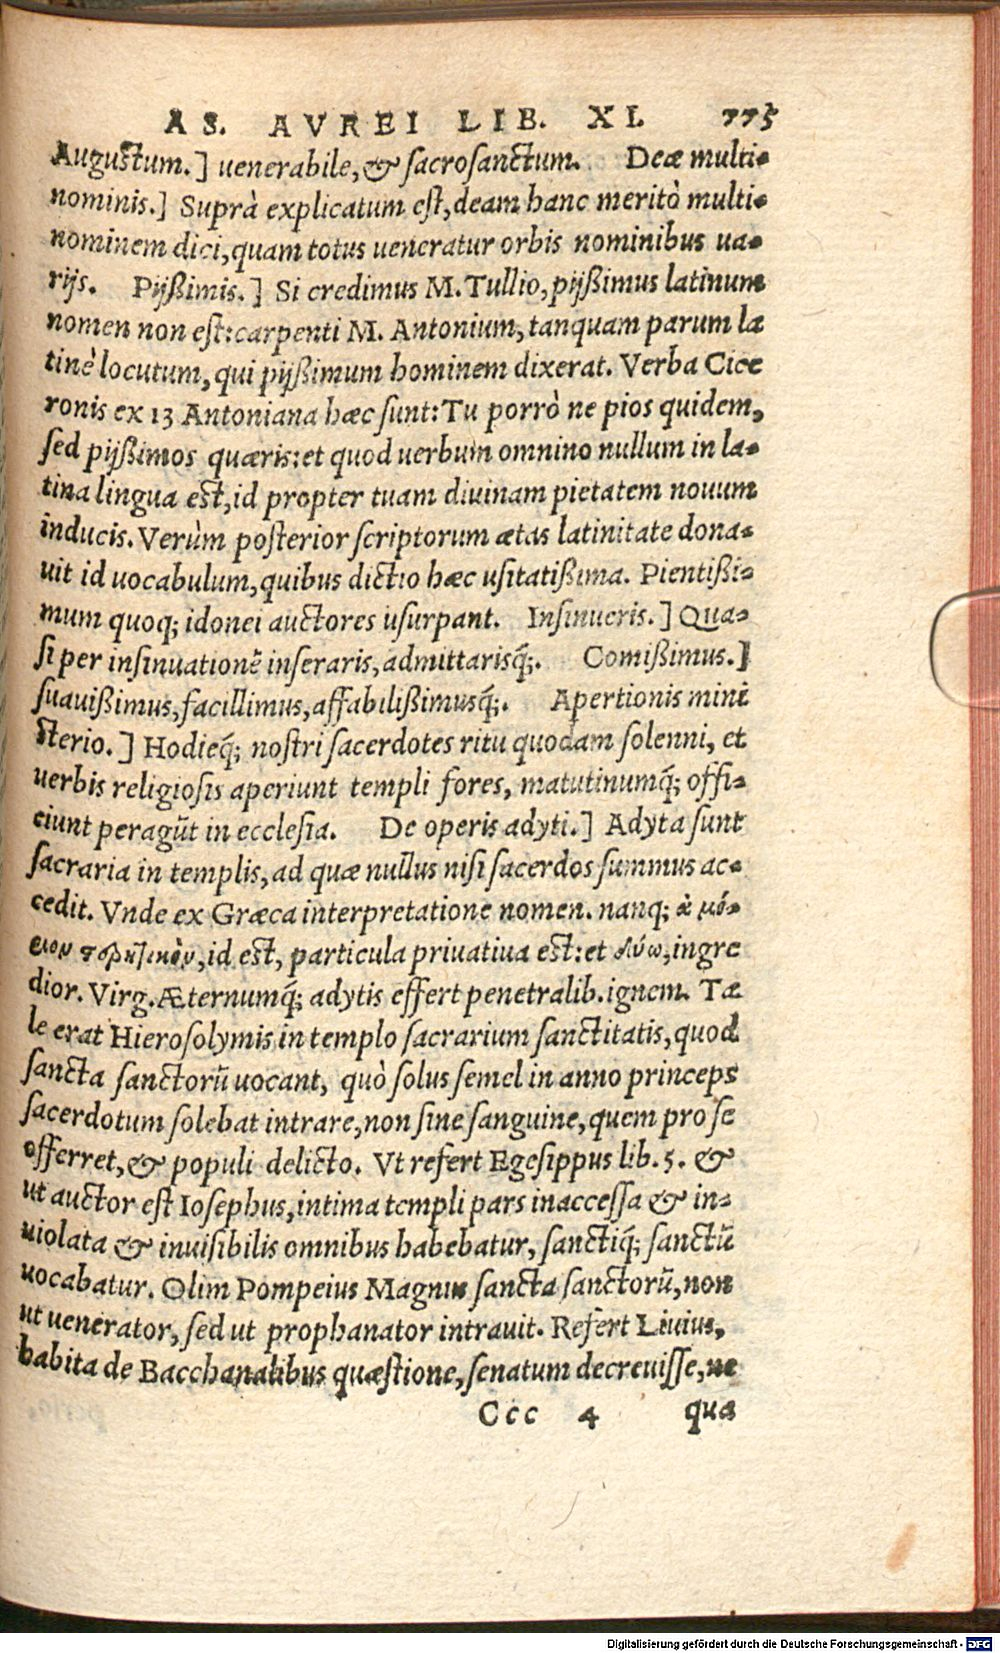 AS. AVREI LIB. XI. 775
Augustum.] uenerabile, & sacrosanctum. Deæ multi-
nominis.] Suprà explicatum est, deam hanc meritò multi-
nominem dici, quam totus ueneratur orbis nominibus ua-
rijs. Pijßimis.] Si credimus M. Tullio, pijßimus latinum
nomen non est: carpenti M. Antonium, tanquam parum la
tinè locutum, qui pijßimum hominem dixerat. Verba Cice
ronis ex 13 Antoniana hæc sunt: Tu porrò ne pios quidem,
sed pijßimos quæris: et quod uerbum omnino nullum in la-
tina lingua est, id propter tuam diuinam pietatem nouum
inducis. Verùm posterior scriptorum ætas latinitate dona-
uit id uocabulum, quibus dictio hæc usitatißima. Pientißi-
mum quoq; idonei auctores usurpant. Insinueris.] Qua-
si per insinuationẽ inseraris, admittarisq́;. Comißimus.]
suauißimus, facillimus, affabilißimusq́;. Apertionis mini
sterio.] Hodieq́; nostri sacerdotes ritu quodam solenni, et
uerbis religiosis aperiunt templi fores, matutinumq́; offi-
ciunt peragũt in ecclesia. De operis adyti.] Adyta sunt
sacraria in templis, ad quæ nullus nisi sacerdos summus ac-
cedit. Vnde ex Græca interpretatione nomen. nanq; ἀ μό-
ριον στερητικὸν, id est, particula priuatiua est: et δύω, ingre
dior. Virg. Æternumq́; adytis effert penetralib. ignem. Ta
le erat Hierosolymis in templo sacrarium sanctitatis, quod
sancta sanctorũ uocant, quò solus semel in anno princeps
sacerdotum solebat intrare, non sine sanguine, quem pro se
offerret, & populi delicto. Vt refert Egesippus lib. 5. &
ut auctor est Iosephus, intima templi pars inaccessa & in-
uiolata & inuisibilis omnibus habebatur, sanctiq́; sanctũ
uocabatur. Olim Pompeius Magnus sancta sanctorũ, non
ut uenerator, sed ut prophanator intrauit. Refert Liuius,
habita de Bacchanalibus quæstione, senatum decreuisse, ne
Ccc 4 qua
Digitalisierung gefördert durch die Deutsche Forschungsgemeinschaft - DFG